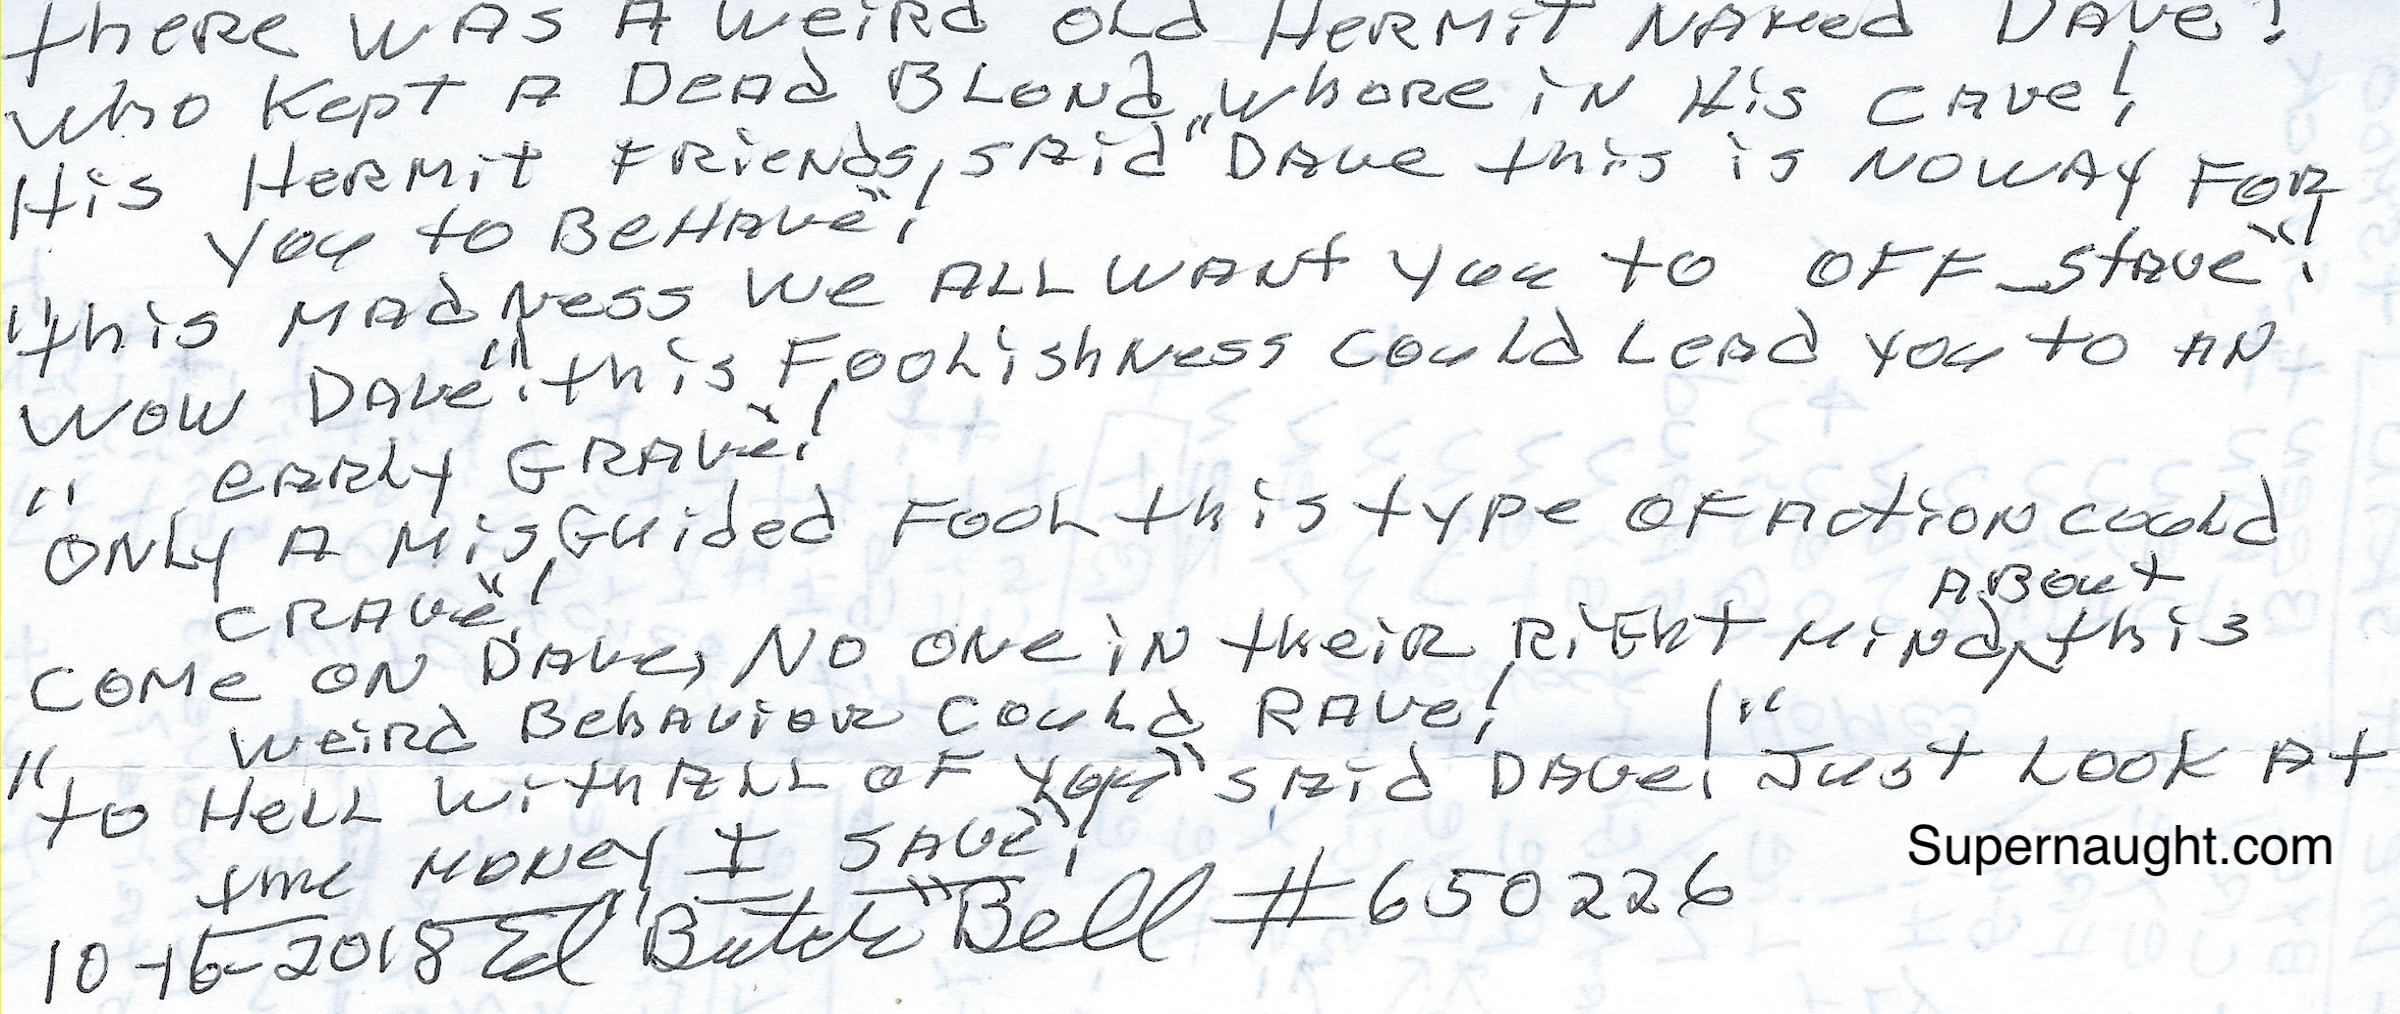 there was A weird old Hermit NAMed DAve!
who Kept A DeAd BLoNd whore iN His CAve!
His HerMit FrieNds, sAid "DAve this is NowAy For
you to BeHAve"!
"this MAdNess we ALL wANt you to OFF_stAve"!
wow DAve"! "this FooLishNess couLd LeAd you to AN
eArLy GRAve"!
"ONLy A MisGuided FooL this type oF Action couLd
CRAve"!
Come oN DAve, No oNe iN their RiGht MiNd, About this
weird BehAvior couLd RAve!
"to HeLL with ALL oF you" sAid DAve! "Just Look At
the MoNey I SAve"!
10-16-2018 Ed "Butch" Bell #650226
Supernaught.com